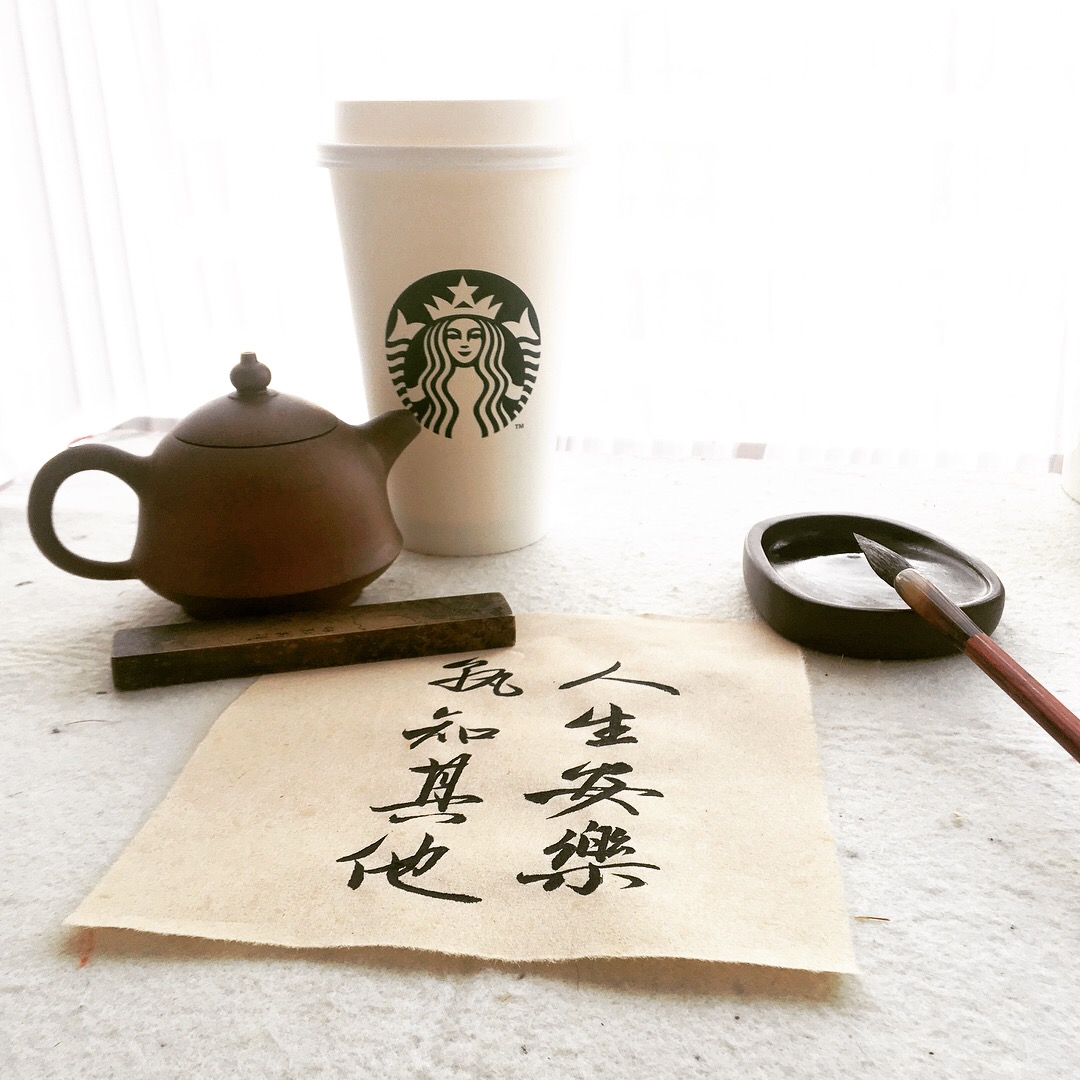 人生安樂
孰知其他
TM